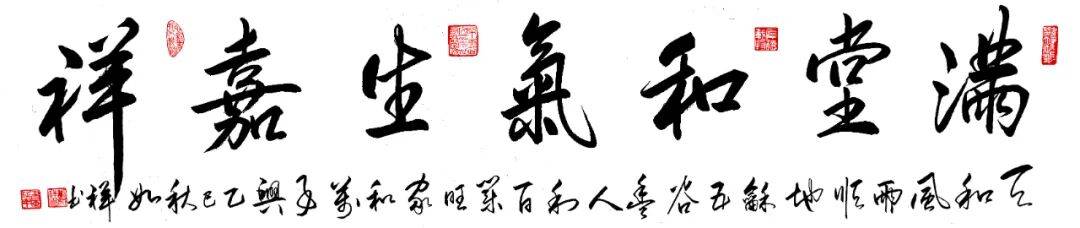 滿堂和氣生嘉祥
天和風雨順地龢五谷豐人和百業旺家和萬事興乙巳秋如祥书